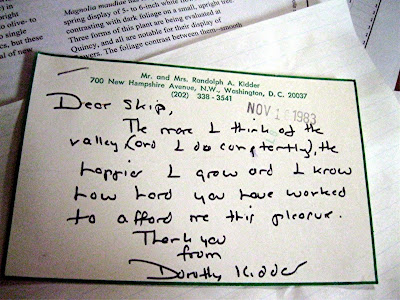 Magnolia maudiae has
spring display of 5- to 6-inch white
contrasting with dark foliage on a small, upright tree.
Three forms of this plant are being evaluated at
Quincy, and all are notable for their display of
flowers. The foliage contrast between them—smooth
olive-to
to single
ics, but these
d to new
Mr. and Mrs. Randolph A. Kidder
700 New Hampshire Avenue, N.W., Washington, D. C. 20037
(202) 338-3541
NOV 1 1983
Dear Skip,
The more I think of the
valley (and I do constantly), the
happier I grow and I know
how hard you have worked
to afford me this pleasure.
Thank you
from
Dorothy Kidder